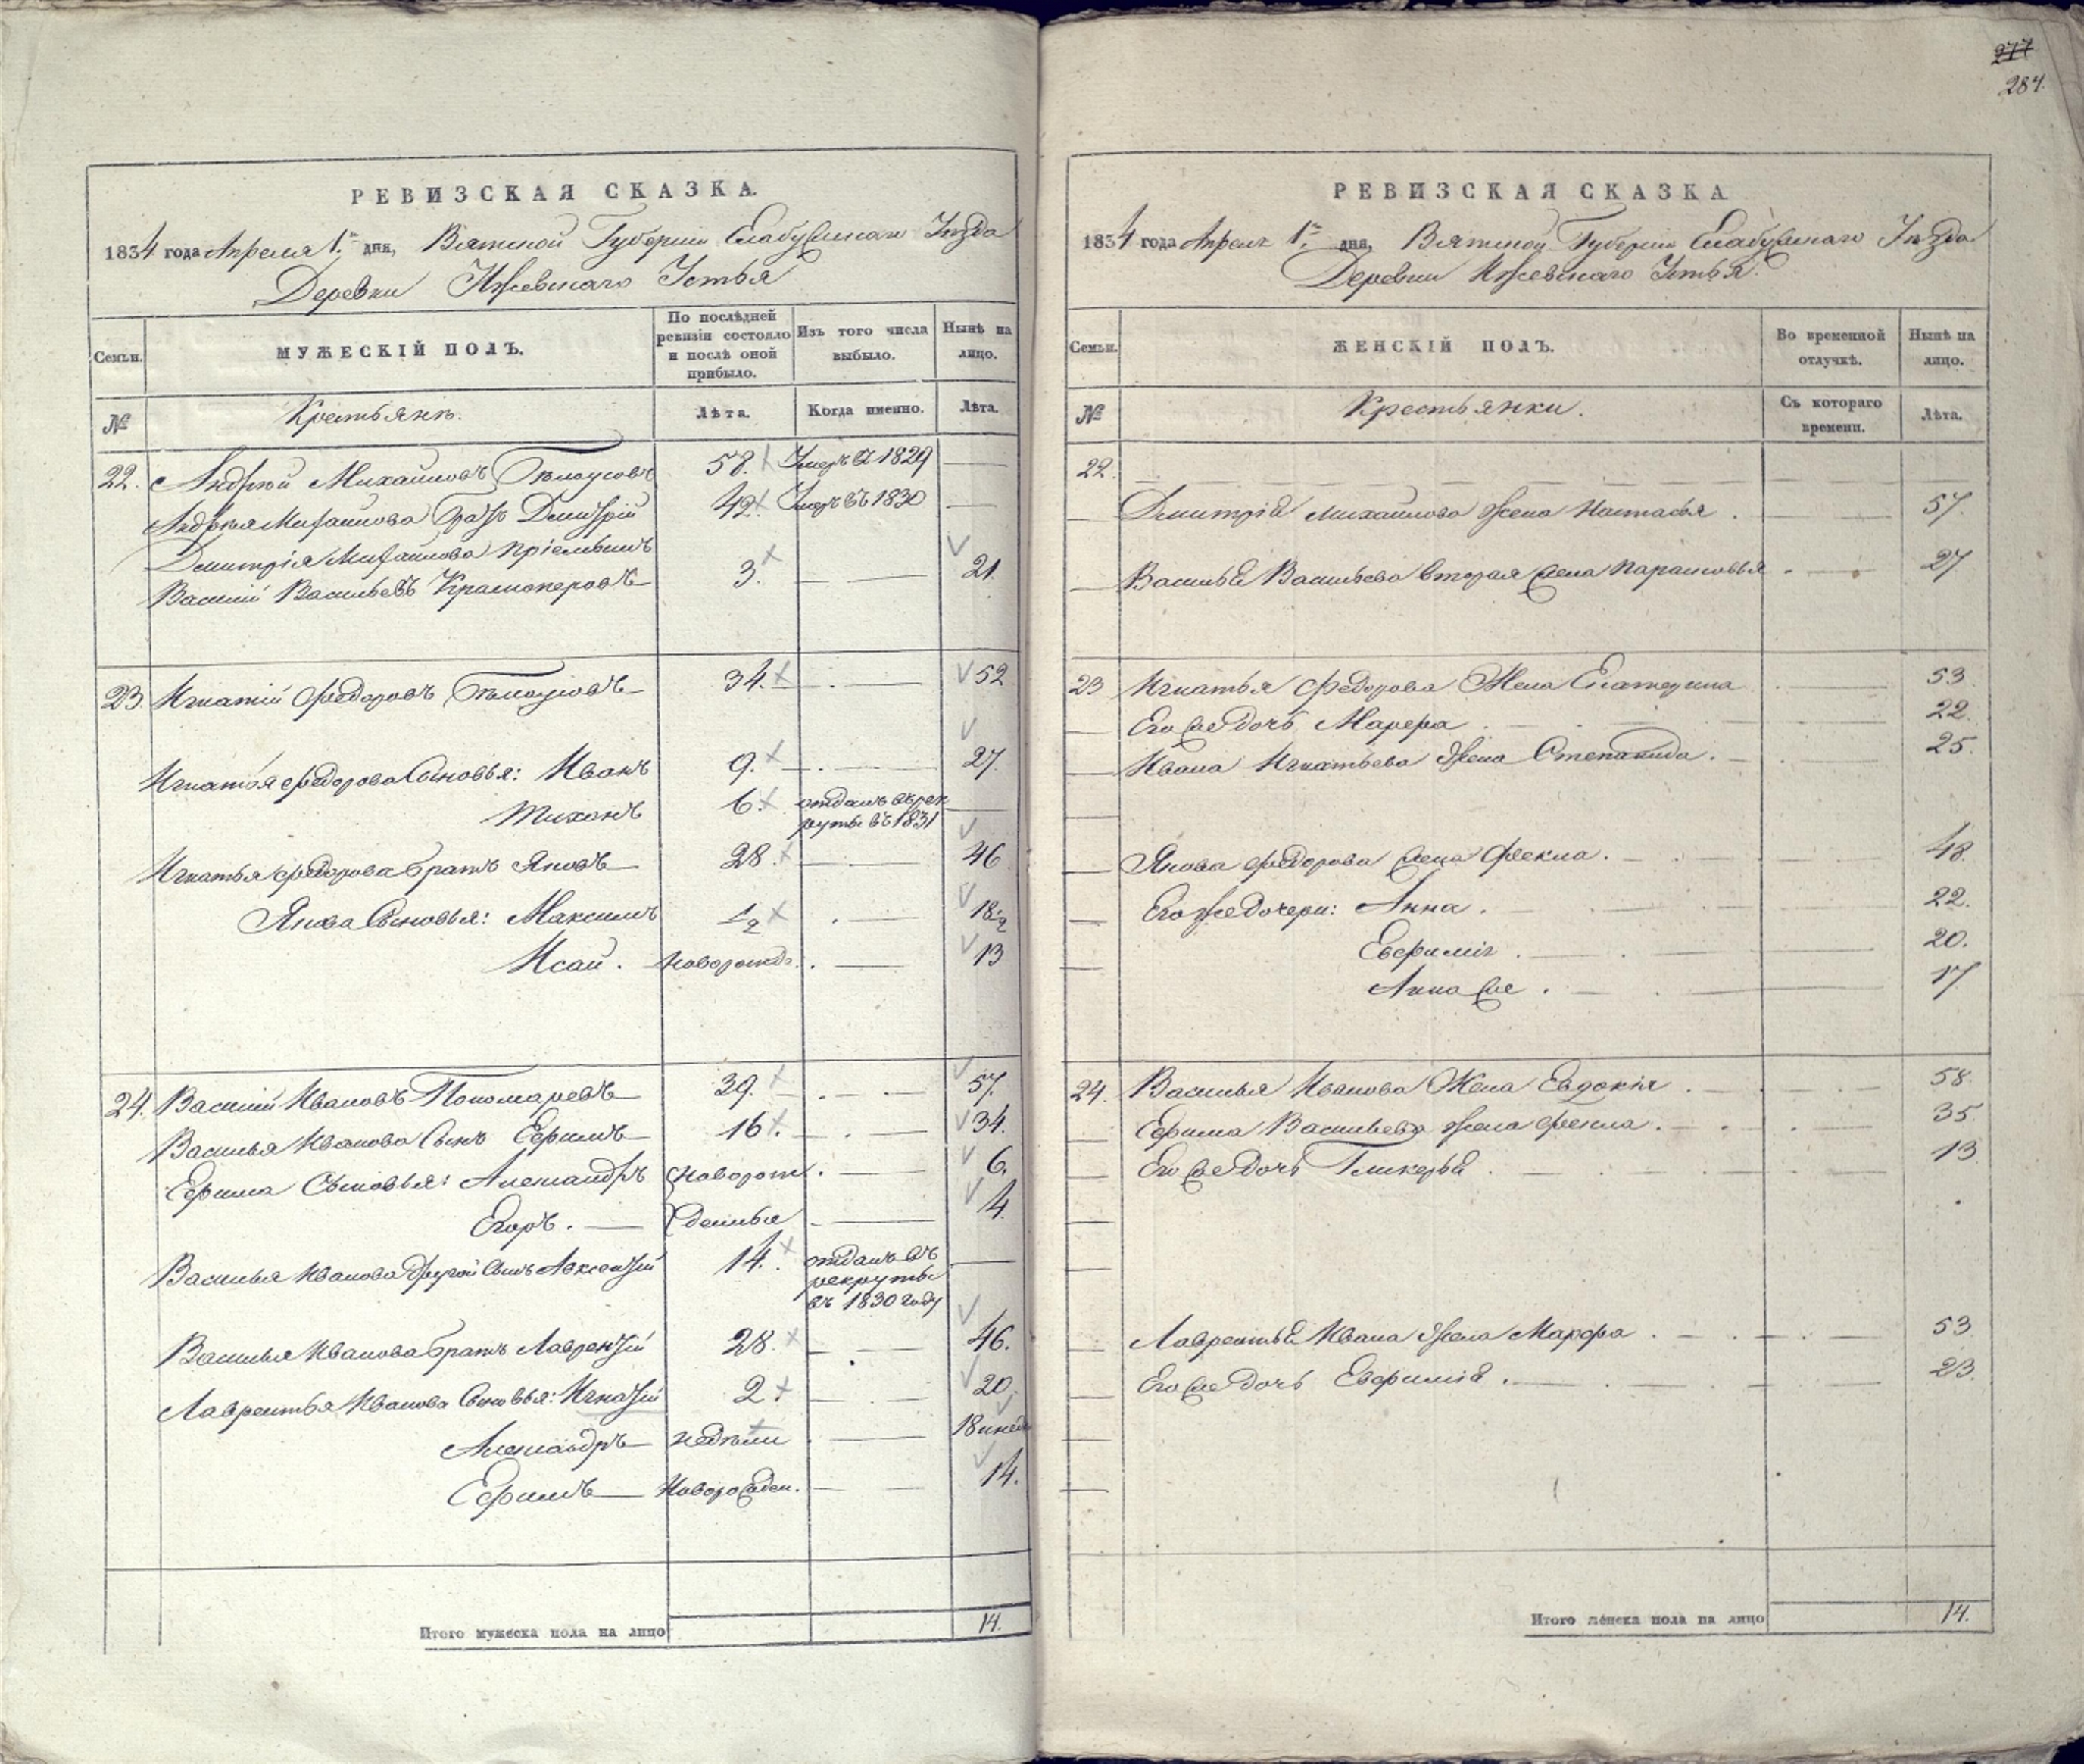 277
284.
РЕВИЗСКАЯ СКАЗКА.
1834 года Апреля 1го дня, Вятской Губернии Елабужскаго Уѣзда
Деревни Ижевскаго Устья
Семьи.
МУЖЕСКІЙ ПОЛЪ.
По послѣдней ревизіи состояло и послѣ оной прибыло.
Изъ того числа выбыло.
Нынѣ на лицо.
№
Крестьянъ.
Лѣта.
Когда именно.
Лѣта.
22. Андрей Михайловъ Бѣлоусовъ 58. Умеръ въ 1829
Андрея Михайлова братъ Дмитрій 42. Умеръ въ 1830
Дмитрія Михайлова пріемышъ
Василій Васильевъ Красноперовъ 3. 21.
23. Игнатій Федоровъ Бѣлоусовъ 34. 52
Игнатья Федорова Сыновья: Иванъ 9. 27.
Тихонъ 6. отданъ въ рек
руты въ 1831
Игнатья Федорова братъ Яковъ 28. 46.
Якова Сыновья: Максимъ 1/2 18 1/2
Исай. новорожд. 13
24. Василій Ивановъ Пономаревъ 39. 57.
Василья Иванова Сынъ Ефимъ 16. 34.
Ефима Сыновья: Александръ новорож 6.
Егоръ. денныя 4.
Василья Иванова другой сынъ Авксентій 14. отданъ въ
рекруты
въ 1830 году
Василья Иванова братъ Лаврентій 28. 46.
Лаврентья Иванова Сыновья: Игнатій 2. 20.
Александръ недѣли 18 и нед
Ефимъ Новорожден. 14.
Итого мужеска пола на лицо 14.
РЕВИЗСКАЯ СКАЗКА
1834 года Апреля 1го дня, Вятской Губерніи Елабужскаго Уѣзда
Деревни Ижевскаго Устья.
Семьи.
ЖЕНСКІЙ ПОЛЪ.
Во временной отлучкѣ.
Нынѣ на лицо.
№
Крестьянки.
Съ котораго времени.
Лѣта.
22.
Дмитрія Михайлова жена Настасья. 57.
Василья Васильева вторая жена Парасковья 27
23 Игнатья Федорова Жена Екатерина 53
Его же дочь Марфа 22.
Ивана Игнатьева жена Степанида. 25.
Якова Федорова жена Фекла. 48.
Его же дочери: Анна. 22.
Евфимія. 20.
Анна же. 17
24. Василья Иванова Жена Евдокія. 58.
Ефима Васильева жена Фекла. 35.
Его же дочь Гликерья. 13
Лаврентья Ивана жена Марфа. 53
Его же дочь Евфимія. 23.
Итого женска пола на лицо 14.